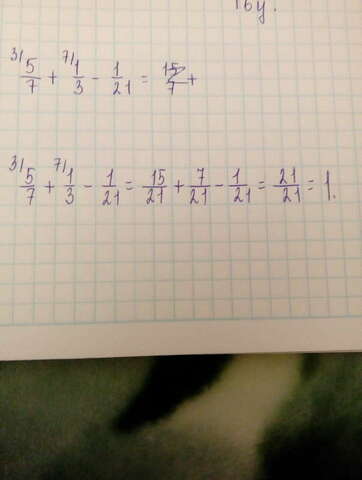 ву.
3/ 5/7 + 7/ 1/3 - 1/21 = 15/7 +
3/ 5/7 + 7/ 1/3 - 1/21 = 15/21 + 7/21 - 1/21 = 21/21 = 1.